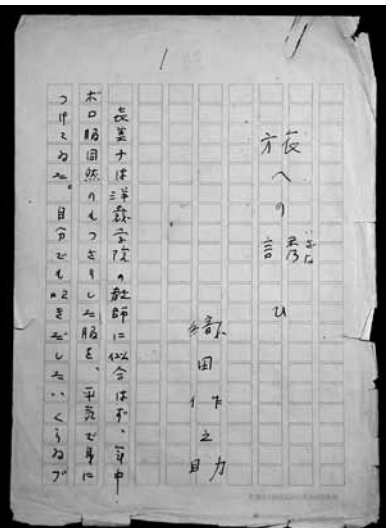 1
旅への誘ひ
いざな
織田作之助
喜美子は洋裁学院の教師に似合はず、年中
ボロ服同然のもつさりした服を、平気で身に
つけてゐた。自分でも吹きだしたいくらゐブ